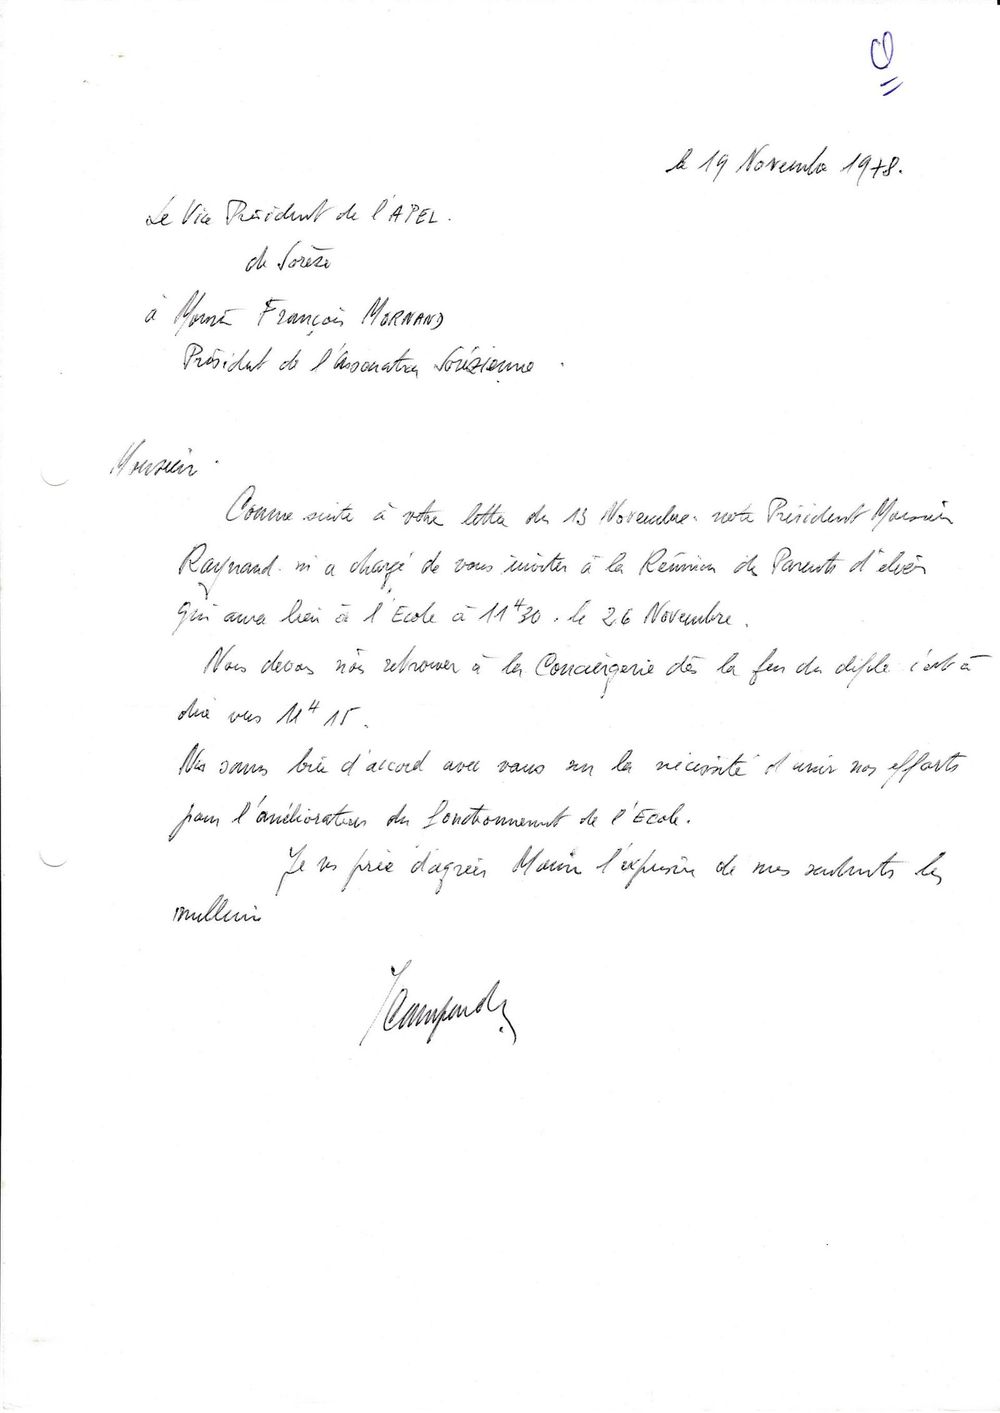 le 19 Novembre 1978.
Le Vice Président de l'APEL.
de Sorèze
à Monsieur François MORNAND
Président de l'Association Sorézienne.
Monsieur.
Comme suite à votre lettre du 13 Novembre. notre Président Monsieur
Raynaud m'a chargé de vous inviter à la Réunion des Parents d'élèves
qui aura lieu à l'Ecole à 11H30. le 26 Novembre.
Nous devons nous retrouver à la Conciergerie dès la fin du défilé c'est à
dire vers 11H15.
Nous sommes bien d'accord avec vous sur la nécessité d'unir nos efforts
pour l'amélioration du fonctionnement de l'Ecole.
Je vs prie d'agréer Monsieur l'expression de mes sentiments les
meilleurs